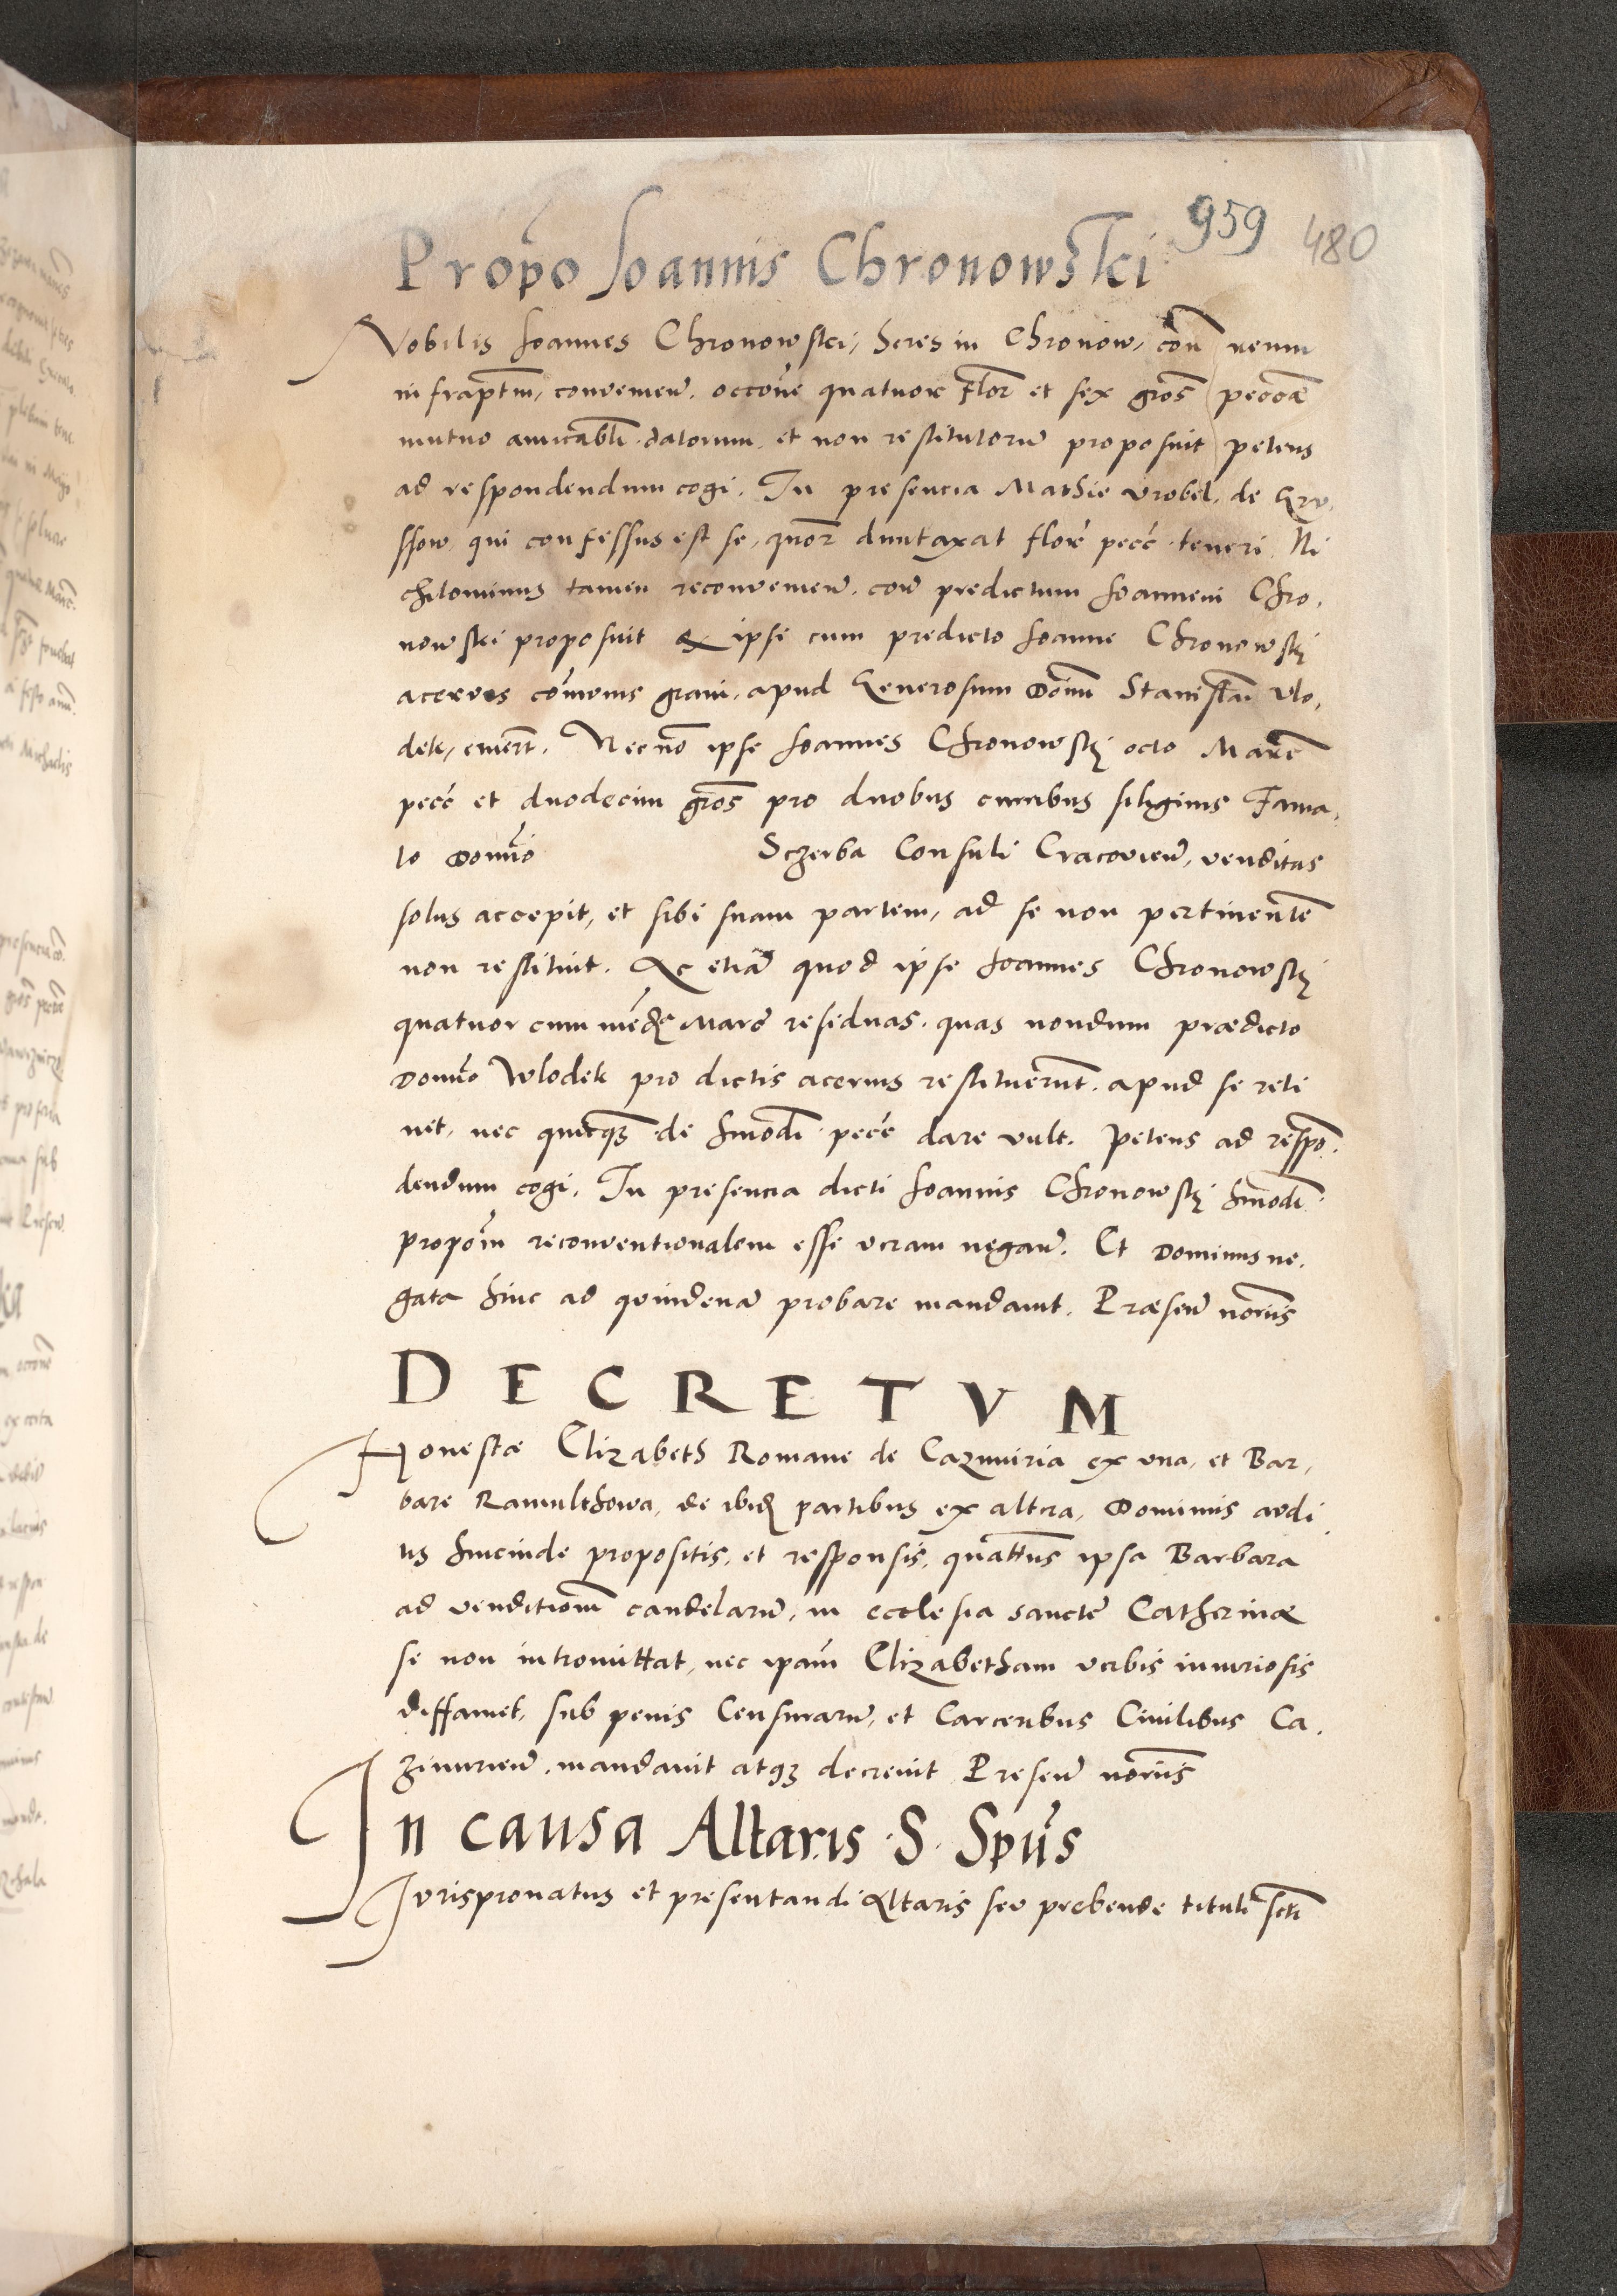 959 480
Propo Joannis Chronowski
Nobilis Joannes Chronowski, heres in Chronow, con reum
infraptm, convenien. occone quatuor Flor et sex gros peccae
mutuo amicabli datorum, et non restitutoru proposuit petens
ad respondendum cogi. In presencia Mathie Vrobel, de Gru,
ssow, qui confessus est se, quor duntaxat flore pecc teneri Ni
chilominus tamen reconvenien. con predictum Joannem Chro,
nowski proposuit & ipse cum predicto Joanne Chronowskj
acervos comonis grani, apud Generosum Domm Stanislau Vlo,
dek, emert. Nec no ipse Joannes Chronowskj octo Marc
pecc et duodecim gros pro duobus curribus siliginis Fama,
to Domino Sczerba Consuli Cracovien, venditas
solus accepit, et sibi suam partem, ad se non pertinente
non restituit. Ac etia quod ipse Joannes Chronowskj
quatuor cum med Marc residuas. quas nondum prædicto
Domino Wlodek pro dictis acervis restituerunt. apud se reti
net, nec quicqz de hmodi pecc dare vult. Petens ad respo.
dendum cogi. In presencia dicti Joannis Chronowskj hmodi
propom reconventionalem esse veram negan. Et Dominus ne,
gata hinc ad quindena probare mandavit. Præsen notriis
DECRETVM
Honestæ Elizabeth Romane de Cazimiria ex una, et Bar,
bare Ramulthowa, de ibid partibus ex altera, Dominus audi
tis hincinde propositis, et responsis, quattus ipsa Barbara
ad venditiom candelaru, in ecclesia sancte Catherinæ
se non intromittat, nec ipam Elizabetham verbis iniuriosis
diffamet, sub penis Censuraru, et Carceribus Civilibus Ca.
zimirien. mandavit atqz decrevit Presen notriis
In causa Altaris S. Spus
Jurispronatus et presentandi Altaris seu prebende tituli scti